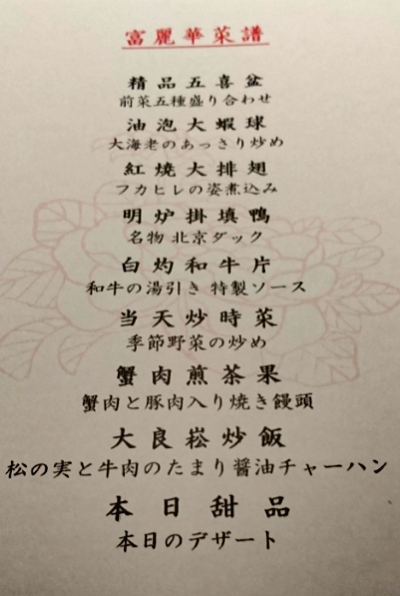 富麗華菜譜
精品五喜盆
前菜五種盛り合わせ
油泡大蝦球
大海老のあっさり炒め
紅燒大排翅
フカヒレの姿煮込み
明炉掛填鴨
名物 北京ダック
白灼和牛片
和牛の湯引き 特製ソース
当天炒時菜
季節野菜の炒め
蟹肉煎茶果
蟹肉と豚肉入り焼き饅頭
大良崧炒飯
松の実と牛肉のたまり醤油チャーハン
本日甜品
本日のデザート